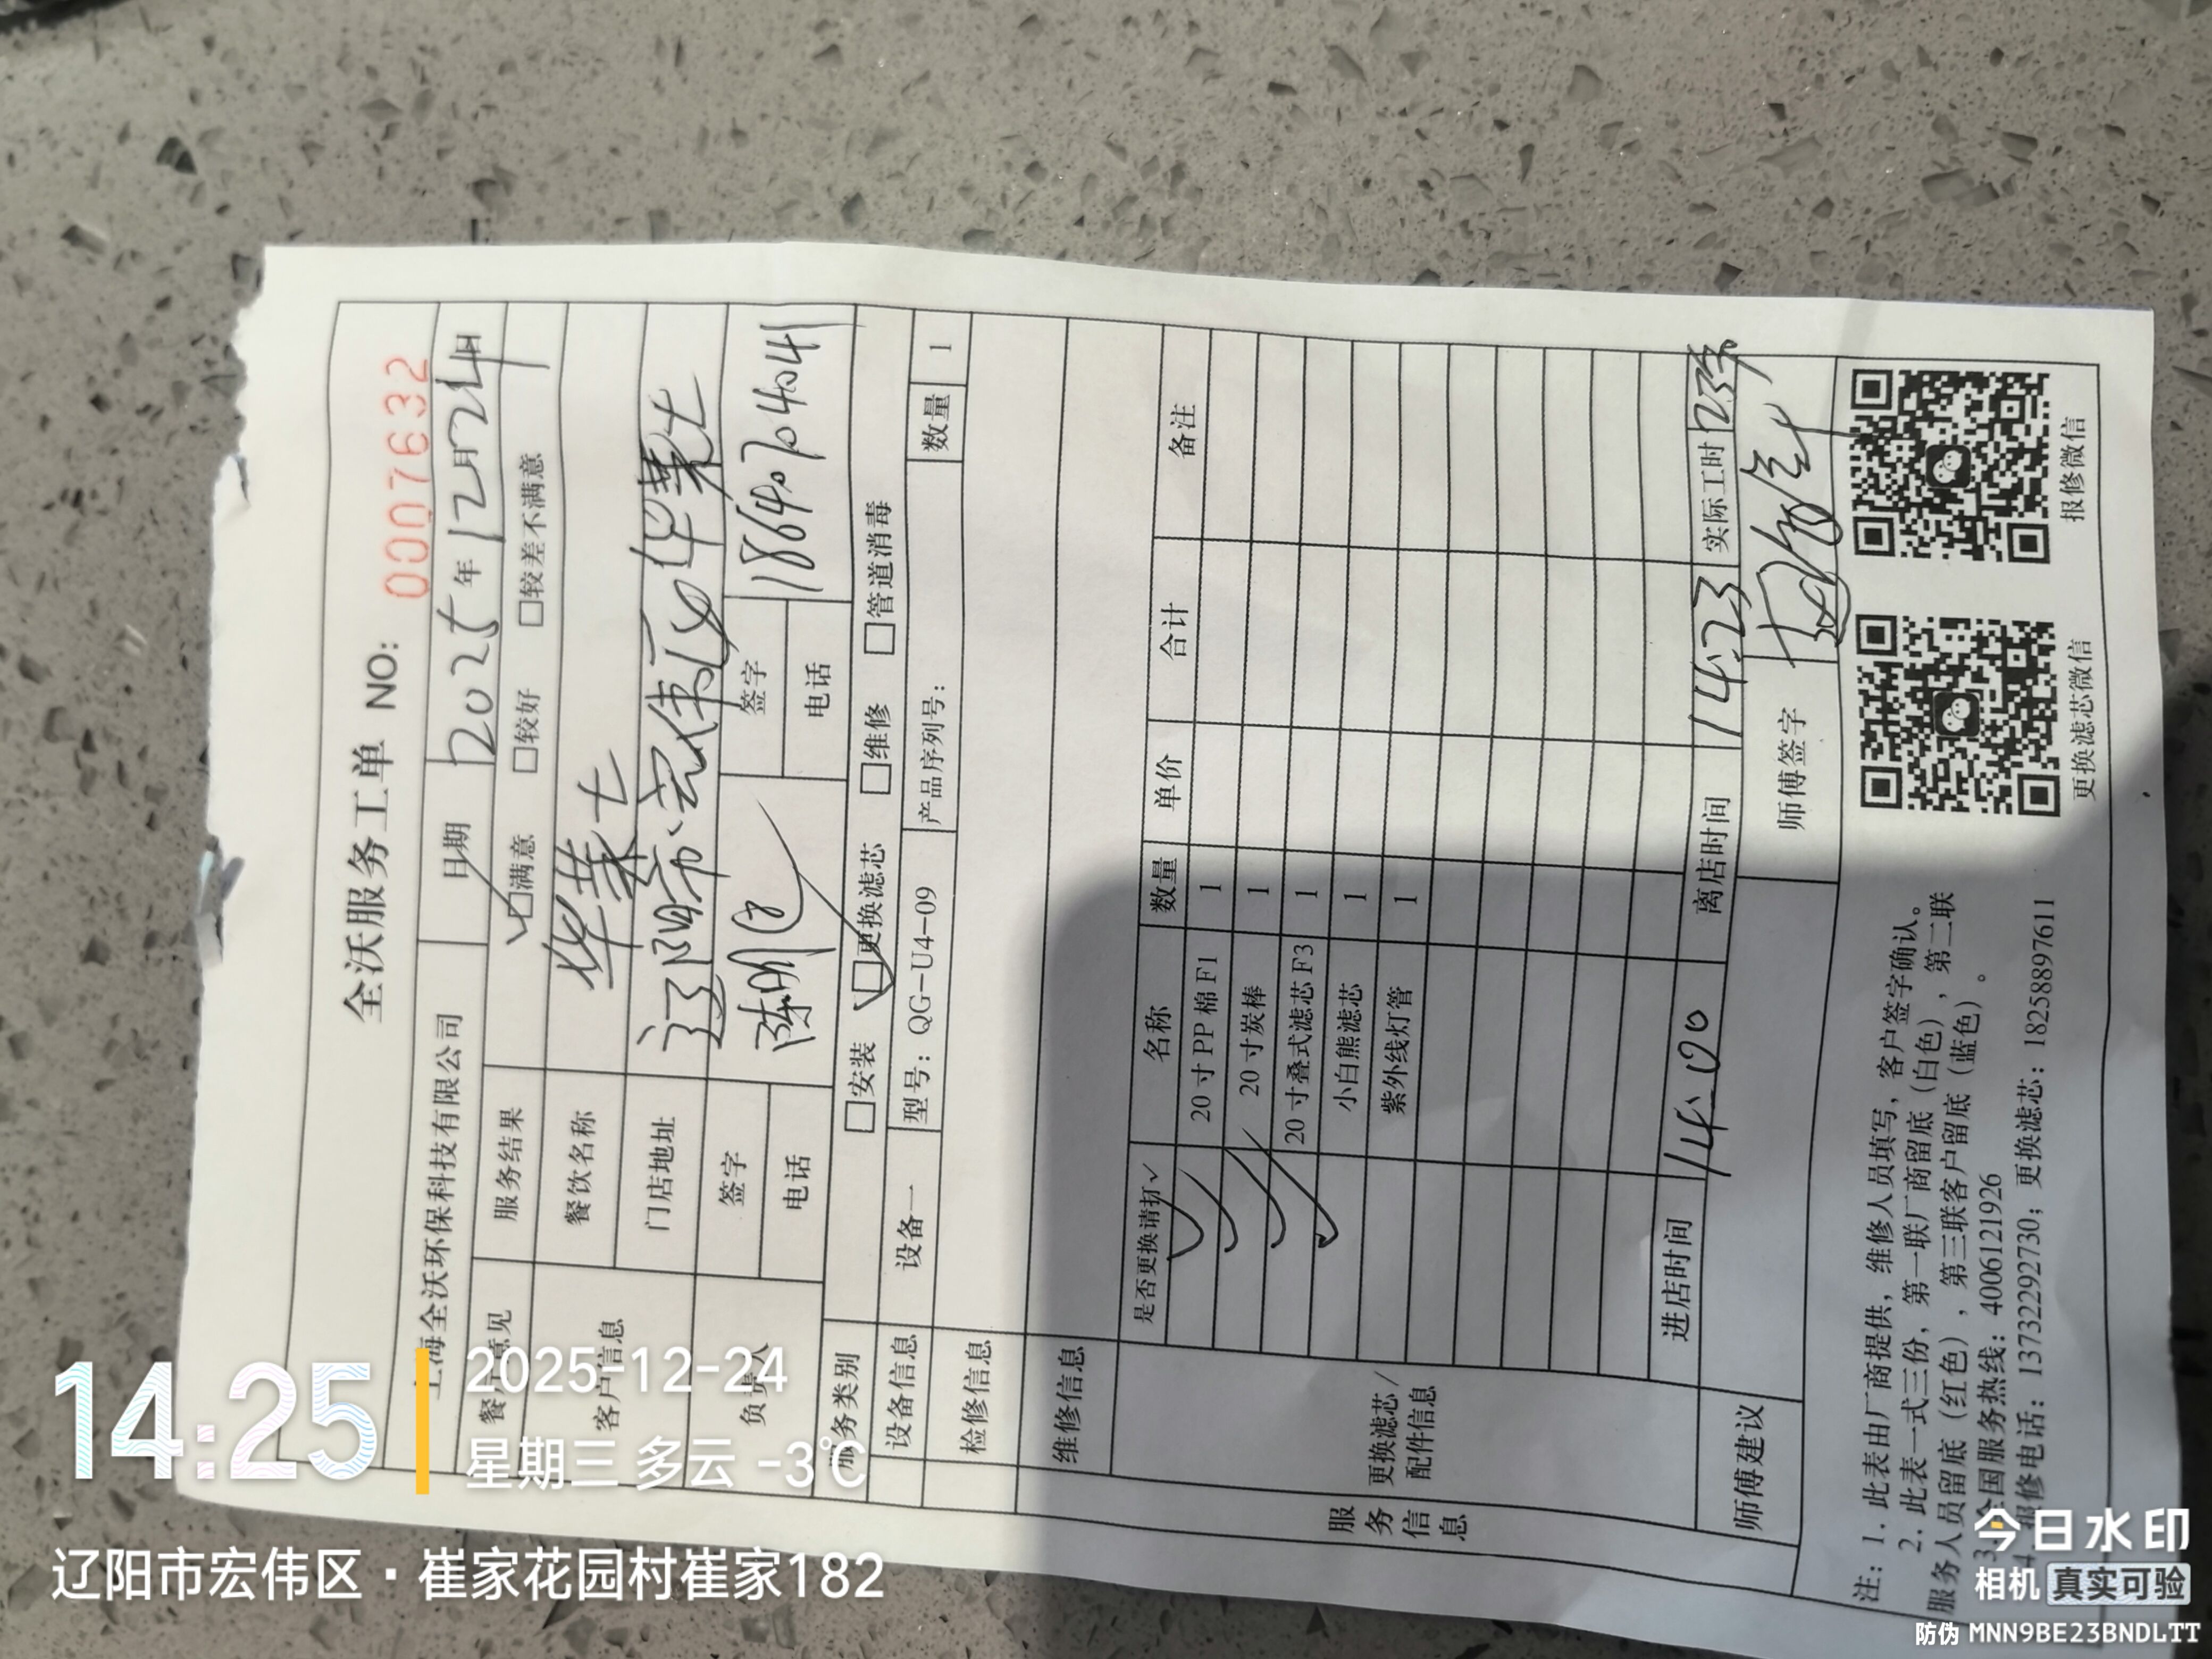 全沃服务工单 NO: 0007632
上海全沃环保科技有限公司 日期 2025年12月24日
餐厅意见 服务结果 ☑满意 □较好 □较差不满意
客户信息 餐饮名称 华莱士
门店地址 辽阳市宏伟区华莱士
负责人 签字 签字
电话 电话
服务类别 □安装 ☑更换滤芯 □维修 □管道消毒
设备信息 设备一 型号：QG-U4-09 产品序列号： 数量 1
检修信息
维修信息
服务信息
更换滤芯/配件信息
是否更换请打✓ 名称 数量 单价 合计 备注
✓ 20寸PP棉F1 1
✓ 20寸炭棒 1
✓ 20寸叠式滤芯F3 1
✓ 小白熊滤芯 1
紫外线灯管 1
进店时间 14:00 离店时间 14:23 实际工时 23分
师傅建议 师傅签字
注：1. 此表由厂商提供，维修人员填写，客户签字确认。
2. 此表一式三份，第一联厂商留底（白色），第二联
服务人员留底（红色），第三联客户留底（蓝色）。
3. 全国服务热线：4006121926
4. 报修电话：13732292730；更换滤芯：18258897611
更换滤芯微信 报修微信
14:25
2025-12-24
星期三 多云 -3℃
辽阳市宏伟区·崔家花园村崔家182
今日水印
相机 真实可验
防伪 MNN9BE23BNDLTT